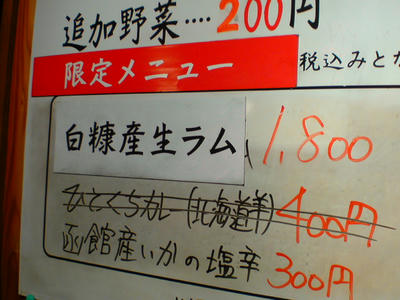 追加野菜....200円
限定メニュー 税込みとか
白糠産生ラム 1,800
ひとくちカレー(北海道羊)400円
函館産いかの塩辛 300円